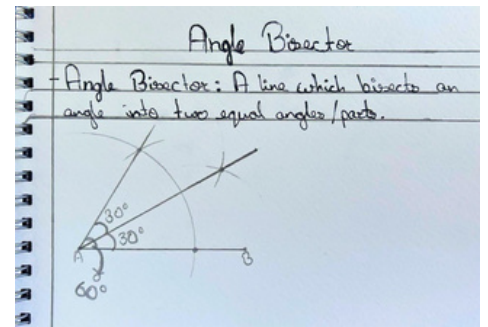 Angle Bisector
- Angle Bisector: A line which bisects an
angle into two equal angles/parts.
30°
30°
A
B
60°